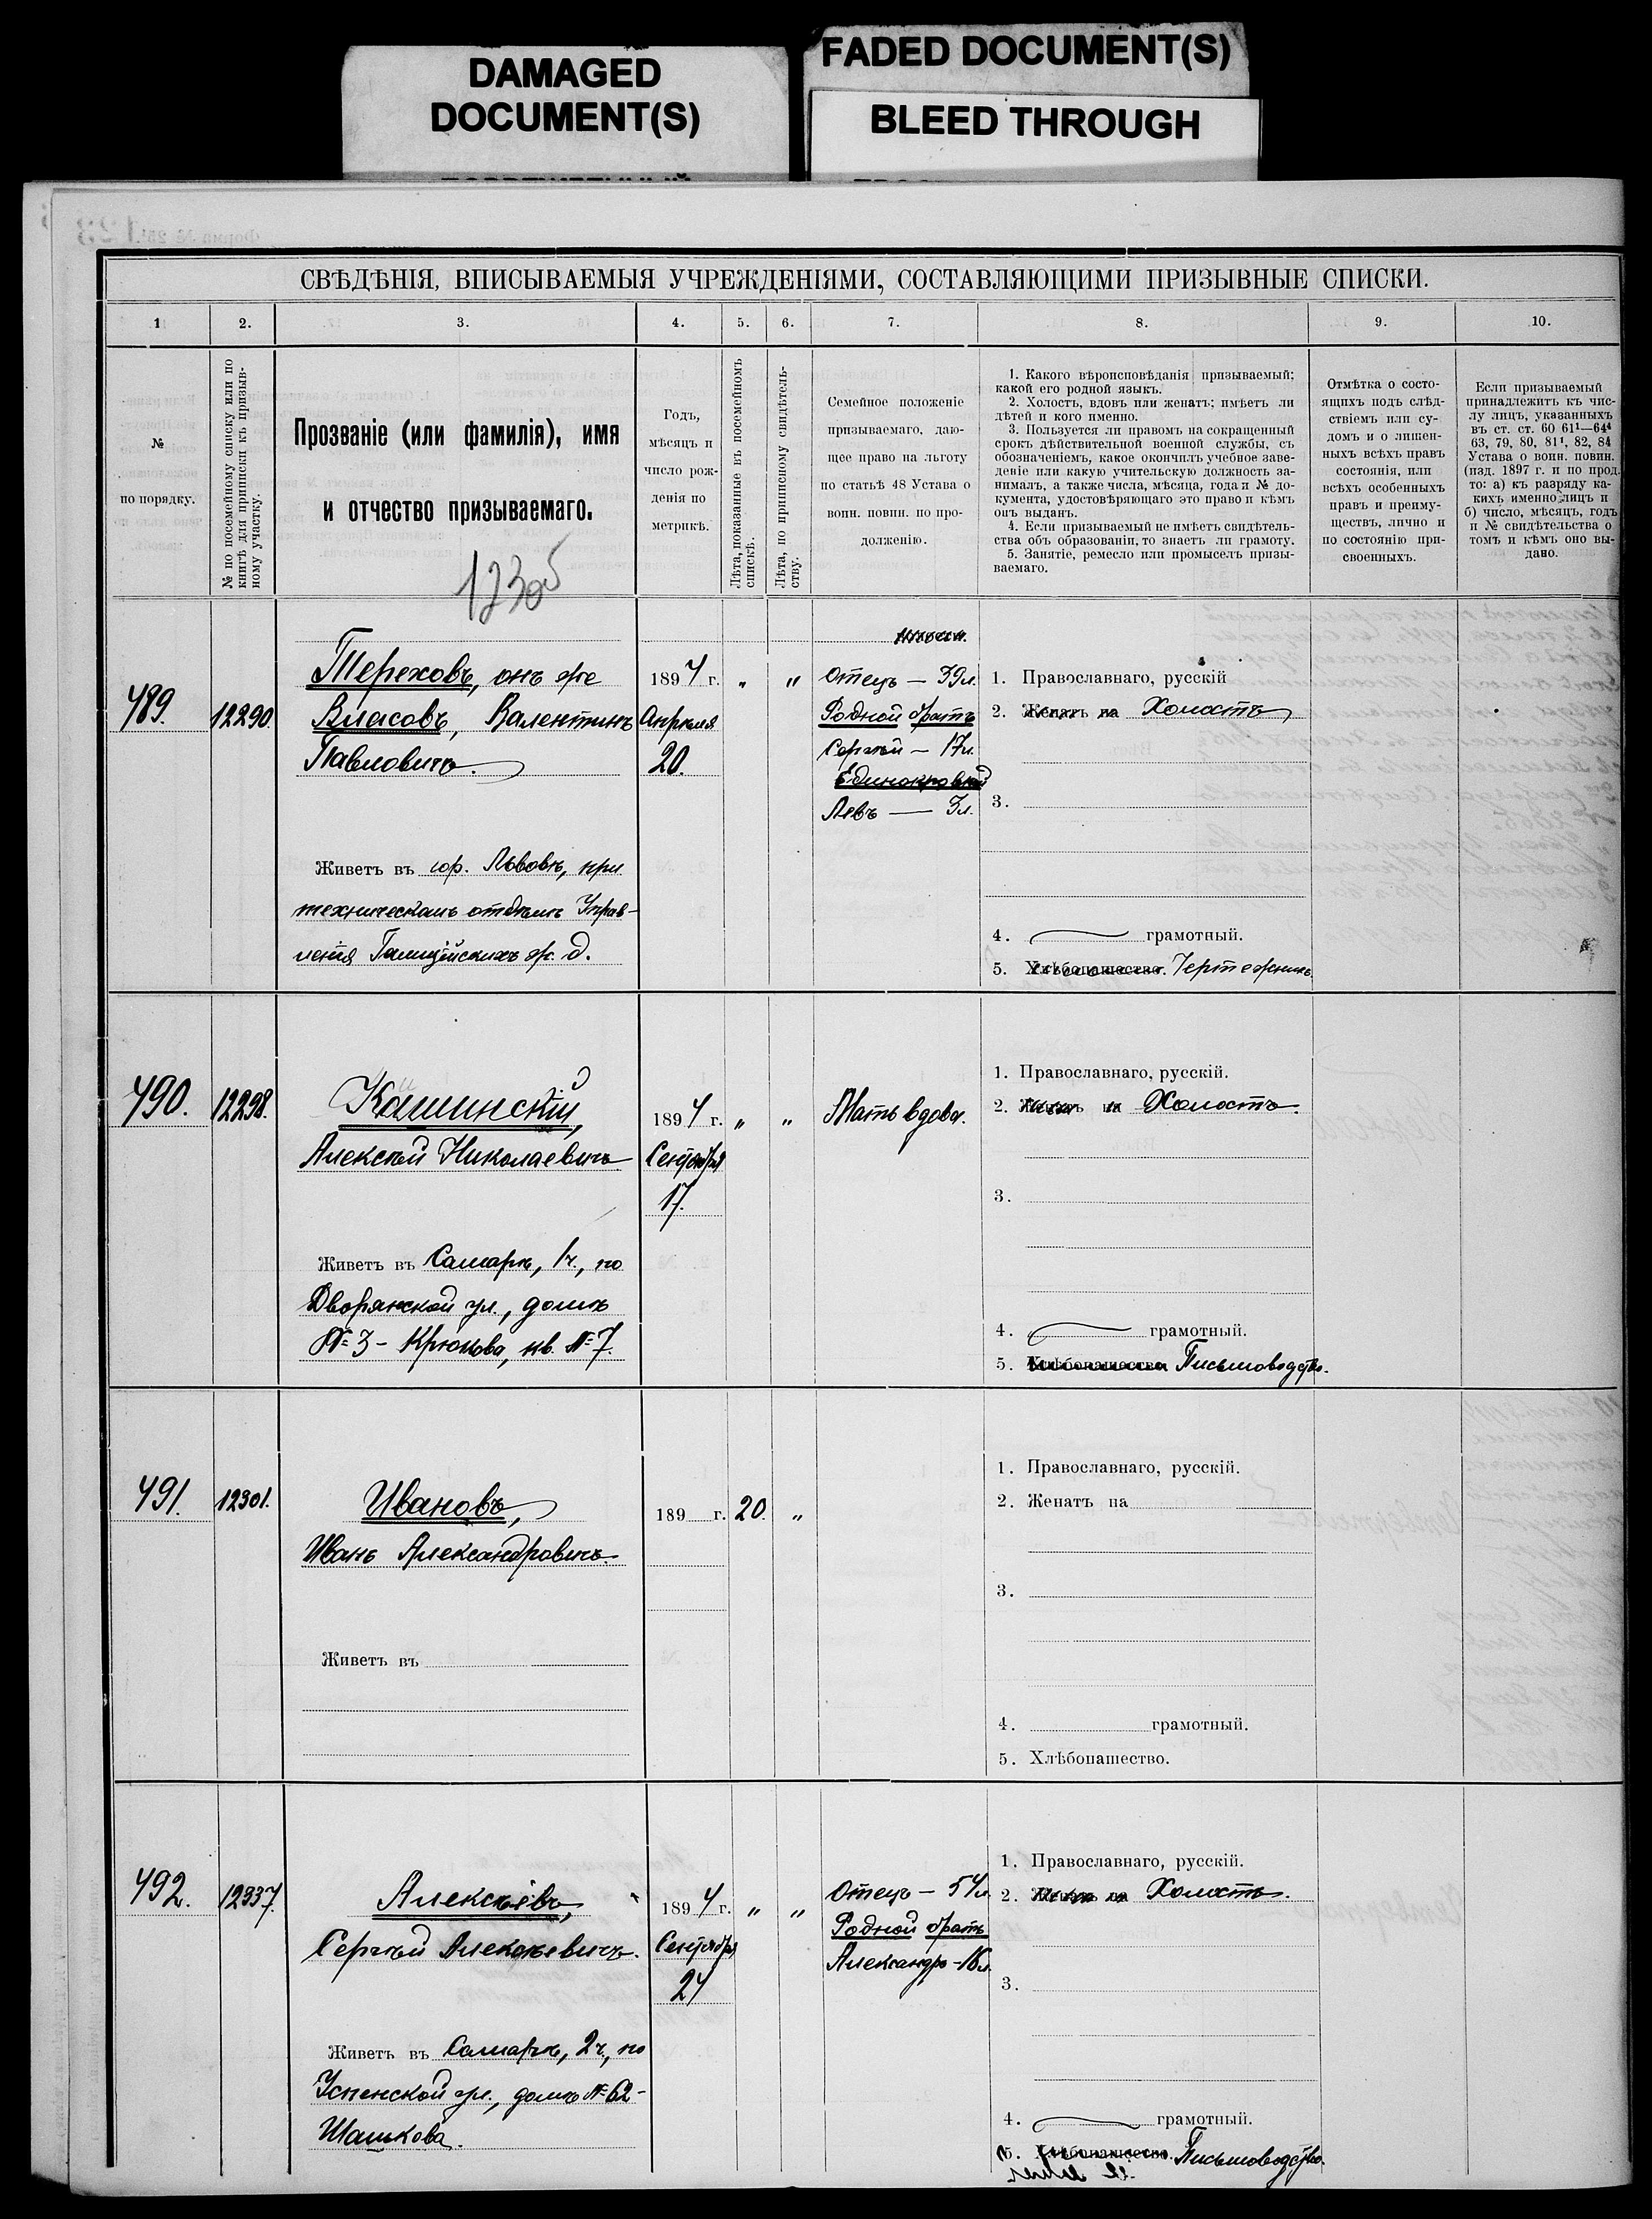 DAMAGED
DOCUMENT(S)
FADED DOCUMENT(S)
BLEED THROUGH
СВѢДѢНІЯ, ВПИСЫВАЕМЫЯ УЧРЕЖДЕНІЯМИ, СОСТАВЛЯЮЩИМИ ПРИЗЫВНЫЕ СПИСКИ.
1 2. 3. 4. 5. 6. 7. 8. 9. 10.
№
по порядку.
№ по посемейному списку или по
книгѣ для приписки къ призыв-
ному участку.
Прозваніе (или фамилія), имя
и отчество призываемаго.
123об
Годъ,
мѣсяцъ и
число рож-
денія по
метрикѣ.
Лѣта, показанныя въ посемейномъ
спискѣ.
Лѣта, по приписному свидѣтель-
ству.
Семейное положеніе
призываемаго, даю-
щее право на льготу
по статьѣ 48 Устава о
воин. повин. по про-
долженію.
1. Какого вѣроисповѣданія призываемый;
какой его родной языкъ.
2. Холостъ, вдовъ или женатъ; имѣетъ ли
дѣтей и кого именно.
3. Пользуется ли правомъ на сокращенный
срокъ дѣйствительной военной службы, съ
обозначеніемъ, какое окончилъ учебное заве-
деніе или какую учительскую должность за-
нималъ, а также числа, мѣсяца, года и № до-
кумента, удостовѣряющаго это право и кѣмъ
онъ выданъ.
4. Если призываемый не имѣетъ свидѣтель-
ства объ образованіи, то знаетъ ли грамоту.
5. Занятіе, ремесло или промыселъ призы-
ваемаго.
Отмѣтка о состо-
ящихъ подъ слѣд-
ствіемъ или су-
домъ и о лишен-
ныхъ всѣхъ правъ
состоянія, или
всѣхъ особенныхъ
правъ и преиму-
ществъ, лично и
по состоянію при-
своенныхъ.
Если призываемый
принадлежитъ къ чис-
лу лицъ, указанныхъ
въ ст. ст. 60 61¹—64⁴
63, 79, 80, 81¹, 82, 84
Устава о воин. повин.
(изд. 1897 г. и по прод.
то: а) къ разряду ка-
кихъ именно лицъ и
б) число, мѣсяцъ, годъ
и № свидѣтельства о
томъ и кѣмъ оно вы-
дано.
489.
12290.
Тереховъ, онъ же
Власовъ, Валентинъ
Павловичъ.
Живетъ въ гор. Львовѣ, при
техническомъ отдѣлѣ Управ-
ленія Галиційскихъ ж. д.
1894 г. " "
Апрѣля
20.
Отецъ — 39л.
Родной братъ
Сергѣй — 17л.
Единокровный
Левъ — 3л.
1. Православнаго, русскій
2. Женатъ на Холостъ
3.
4. грамотный.
5. Хлѣбопашество. Чертежникъ
490.
12298.
Кашинскій,
Алексѣй Николаевичъ
Живетъ въ Самарѣ, 1ч., по
Дворянской ул., домъ
№ 3 - Крюкова, кв. № 7.
1894 г. " "
Сентября
17.
Мать вдова.
1. Православнаго, русскій.
2. Женатъ на Холостъ.
3.
4. грамотный.
5. Хлѣбопашество Письмоводство.
491.
12301.
Ивановъ,
Иванъ Александровичъ.
Живетъ въ
189 г. 20. "
1. Православнаго, русскій.
2. Женатъ на
3.
4. грамотный.
5. Хлѣбопашество.
492.
12337.
Алексѣевъ,
Сергѣй Алексѣевичъ.
Живетъ въ Самарѣ, 2ч., по
Успенской ул., домъ № 62-
Шашкова.
1894 г. " "
Сентября
24
Отецъ — 54л.
Родной братъ
Александръ - 16л.
1. Православнаго, русскій.
2. Женатъ на Холостъ.
3.
4. грамотный.
5. Хлѣбопашество. Письмоводство.